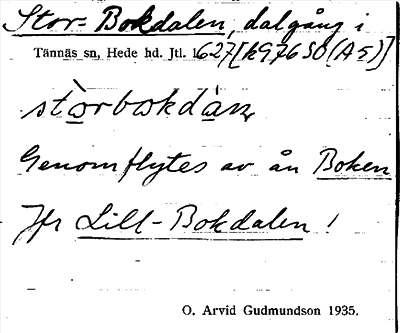 Stor-Bokdalen, dalgång i
Tännäs sn, Hede hd. Jtl. 1627[k976SO(A5)]
Genomflytes av ån Boken
Jfr Lill-Bokdalen!
O. Arvid Gudmundson 1935.